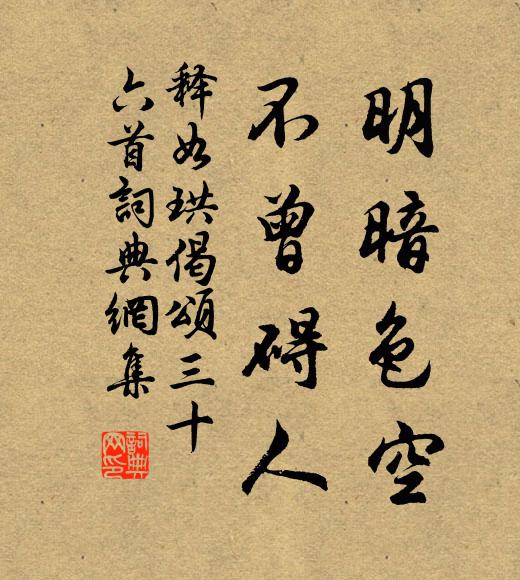 明暗色空
不曾碍人
释如珙偈頌三十
六首詞典網集
詞典网印